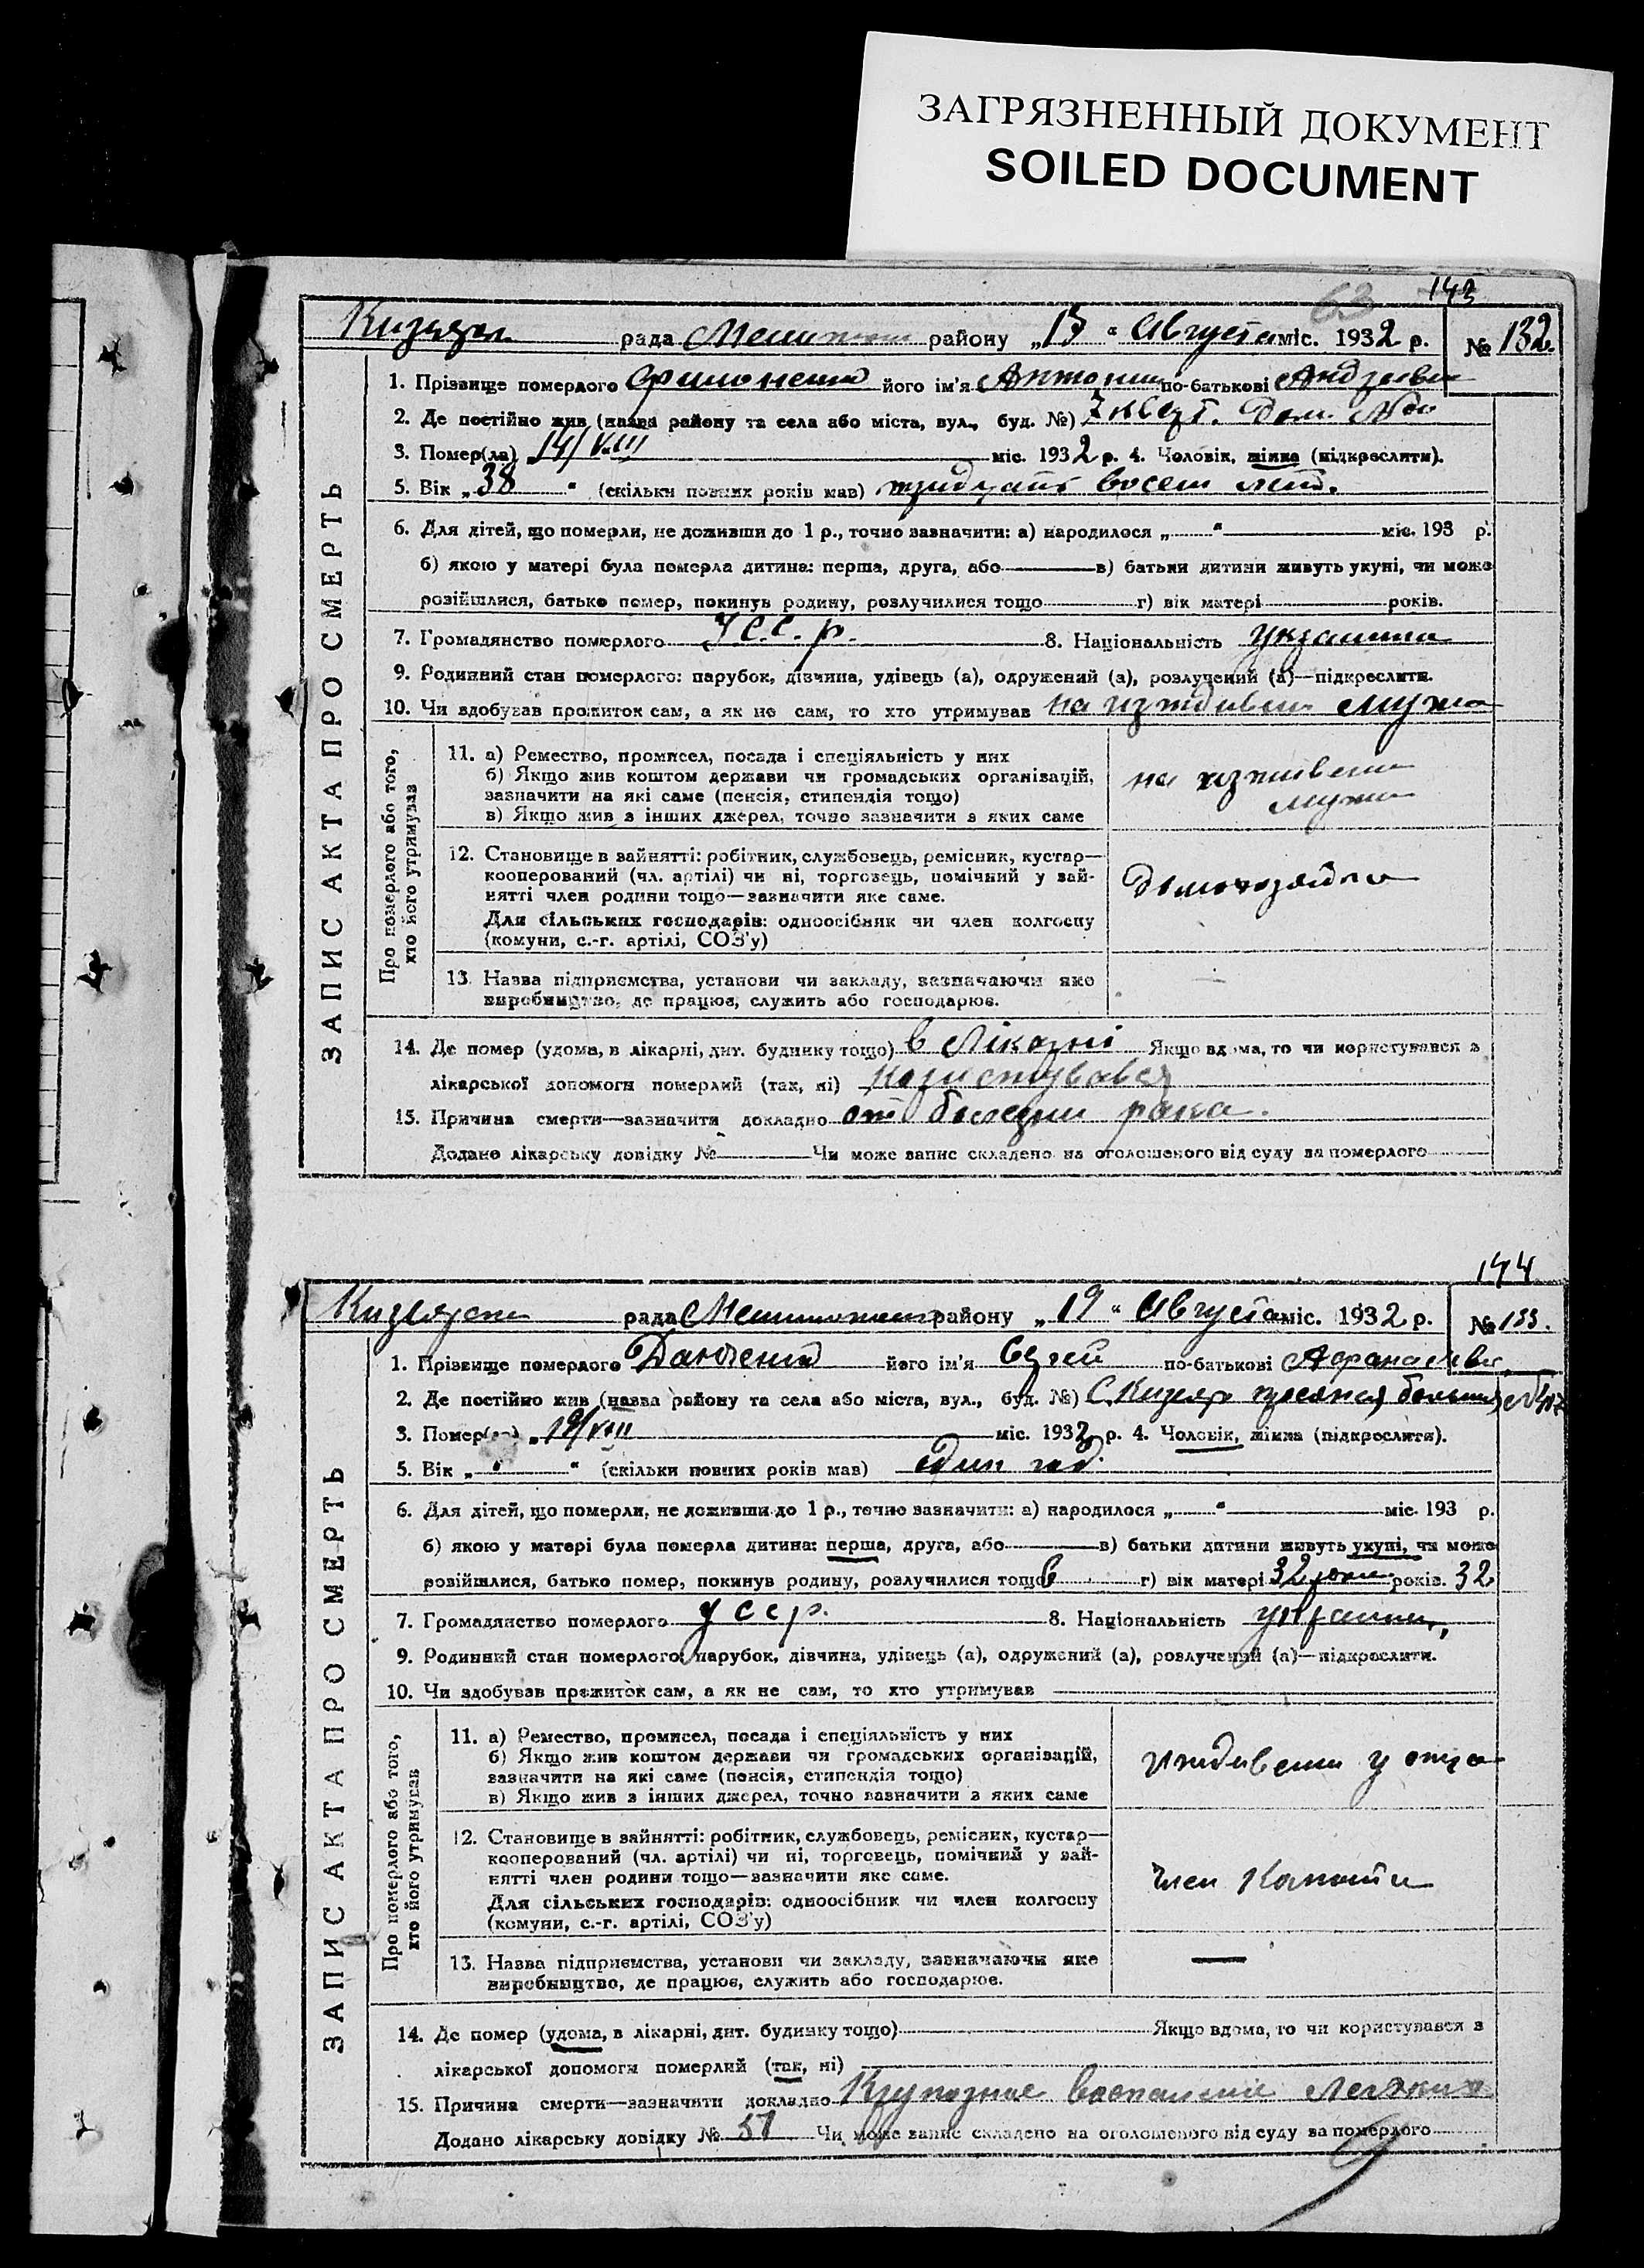 ЗАГРЯЗНЕННЫЙ ДОКУМЕНТ
SOILED DOCUMENT
63 143
рада району „15“ Августа міс. 1932 р. № 132.
ЗАПИС АКТА ПРО СМЕРТЬ
1. Прізвище померлого його ім'я по-батькові
2. Де постійно жив (назва району та села або міста, вул., буд. №)
3. Помер(ла) „14/VIII міс. 1932 р. 4. Чоловік, жінка (підкреслити).
5. Вік „38“ (скільки повних років мав) тридцать восем лет.
6. Для дітей, що померли, не доживши до 1 р., точно зазначити: а) народилося „ “ міс. 193 р.
б) якою у матері була померла дитина: перша, друга, або в) батьки дитини живуть укупі, чи може
розійшлися, батько помер, покинув родину, розлучилися тощо г) вік матері років.
7. Громадянство померлого У.С.С.Р. 8. Національність
9. Родинний стан померлого: парубок, дівчина, удівець (а), одружений (а), розлучений (а)—підкреслити.
10. Чи здобував прожиток сам, а як не сам, то хто утримував на мужа
Про померлого або того, хто його утримував
11. а) Ремество, промисел, посада і спеціяльність у них
б) Якщо жив коштом держави чи громадських організацій,
зазначити на які саме (пенсія, стипендія тощо)
в) Якщо жив з інших джерел, точно зазначити з яких саме
на
12. Становище в зайнятті: робітник, службовець, ремісник, кустар—
кооперований (чл. артілі) чи ні, торговець, помічний у зай-
нятті член родини тощо—зазначити яке саме.
Для сільських господарів: одноосібник чи член колгоспу
(комуни, с.-г. артілі, СОЗ'у)
13. Назва підприємства, установи чи закладу, зазначаючи яке
виробництво, де працює, служить або господарює.
14. Де помер (удома, в лікарні, дит. будинку тощо) в Лікарні Якщо вдома, то чи користувався з
лікарської допомоги померлий (так, ні) користувався
15. Причина смерти—зазначити докладно от болезни рака.
Додано лікарську довідку № Чи може запис складено на оголошеного від суду за померлого
144
рада району „19“ Августа міс. 1932 р. № 133.
ЗАПИС АКТА ПРО СМЕРТЬ
1. Прізвище померлого його ім'я Сергей по-батькові
2. Де постійно жив (назва району та села або міста, вул., буд. №)
3. Помер(ла) „19/VIII міс. 1932 р. 4. Чоловік, жінка (підкреслити).
5. Вік „ “ (скільки повних років мав) один год.
6. Для дітей, що померли, не доживши до 1 р., точно зазначити: а) народилося „ “ міс. 193 р.
б) якою у матері була померла дитина: перша, друга, або в) батьки дитини живуть укупі, чи може
розійшлися, батько помер, покинув родину, розлучилися тощо г) вік матері 32 років. 32
7. Громадянство померлого УССР. 8. Національність
9. Родинний стан померлого: парубок, дівчина, удівець (а), одружений (а), розлучений (а)—підкреслити.
10. Чи здобував прожиток сам, а як не сам, то хто утримував
Про померлого або того, хто його утримував
11. а) Ремество, промисел, посада і спеціяльність у них
б) Якщо жив коштом держави чи громадських організацій,
зазначити на які саме (пенсія, стипендія тощо)
в) Якщо жив з інших джерел, точно зазначити з яких саме
у отца
12. Становище в зайнятті: робітник, службовець, ремісник, кустар—
кооперований (чл. артілі) чи ні, торговець, помічний у зай-
нятті член родини тощо—зазначити яке саме.
Для сільських господарів: одноосібник чи член колгоспу
(комуни, с.-г. артілі, СОЗ'у)
член
13. Назва підприємства, установи чи закладу, зазначаючи яке
виробництво, де працює, служить або господарює.
14. Де помер (удома, в лікарні, дит. будинку тощо) Якщо вдома, то чи користувався з
лікарської допомоги померлий (так, ні)
15. Причина смерти—зазначити докладно Крупозное воспаление Легких
Додано лікарську довідку № 51 Чи може запис складено на оголошеного від суду за померлого